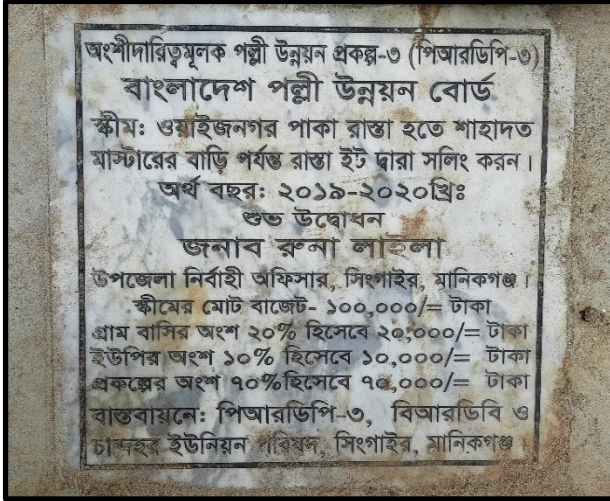 অংশীদারিত্বমূলক পল্লী উন্নয়ন প্রকল্প-৩ (পিআরডিপি-৩)
বাংলাদেশ পল্লী উন্নয়ন বোর্ড
স্কীম: ওয়াইজনগর পাকা রাস্তা হতে শাহাদত
মাস্টারের বাড়ি পর্যন্ত রাস্তা ইট দ্বারা সলিং করন।
অর্থ বছর: ২০১৯-২০২০খ্রিঃ
শুভ উদ্বোধন
জনাব রুনা লাইলা
উপজেলা নির্বাহী অফিসার, সিংগাইর, মানিকগঞ্জ।
স্কীমের মোট বাজেট- ১০০,০০০/= টাকা
গ্রাম বাসির অংশ ২০% হিসেবে ২০,০০০/= টাকা
ইউপির অংশ ১০% হিসেবে ১০,০০০/= টাকা
প্রকল্পের অংশ ৭০%হিসেবে ৭০,০০০/= টাকা
বাস্তবায়নে: পিআরডিপি-৩, বিআরডিবি ও
চান্দহর ইউনিয়ন পরিষদ, সিংগাইর, মানিকগঞ্জ